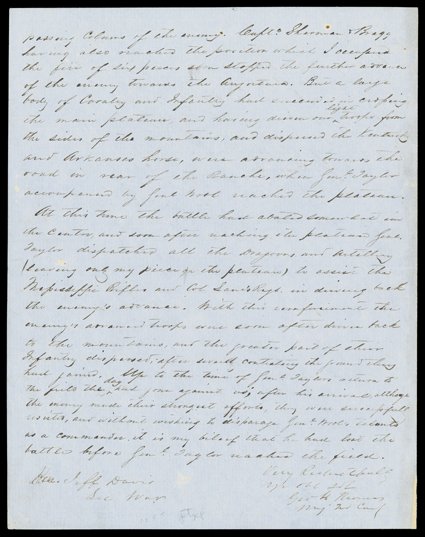 passing column of the enemy. Captns. Sherman & Bragg
having also reached the position which I occupied
the fire of six pieces soon stopped the further advance
of the enemy towards the Angostura. But a large
body of Cavalry and Infantry had succeeded in crossing
the main plateau, and having driven our light troops from
the sides of the mountains, and dispersed the Kentucky
and Arkansas horse, were advancing towards the
road in rear of the Ranche, when Genl. Taylor
accompanied by Genl Wool reached the plateau.
At this time the battle had abated somewhat in
the Center, and soon after reaching the plateau Genl.
Taylor dispatched all the Dragoons and Artillery
(leaving only my piece on the plateau) to assist the
Mississippi Rifles and Col Lane's Regt. in driving back
the enemy's advance. With this reinforcement the
enemy's advanced troops were soon after driven back
to the mountains, and the greater part of their
Infantry dispersed, after
had gained. Up to the time of Genl. Taylor's return to
the field the day had gone against us, after his arrival although
the enemy made their strongest efforts, they were successfully
resisted, and without wishing to disparage Genl. Wool's
as a commander, it is my belief that he had lost the
battle before Genl. Taylor reached the field.
Very Respectfully
Yr. Obt. Sert
Hon. Jeff Davis
Sec War
Geo H Thomas